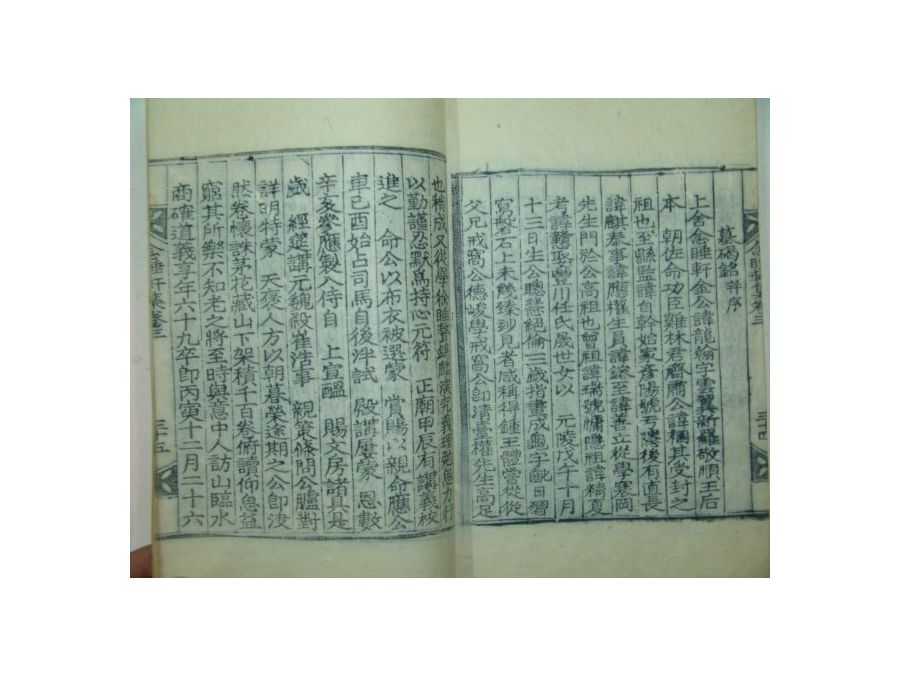 墓碣銘 幷序
上舍念睡軒金公諱龍翰字雲翼新羅敬順王后
本 朝佐命功臣雞林君齊肅公諱稛其受封之
祖也至縣監諱自幹始家彦陽號後有直長
諱麒奉事諱應權生員諱鎔至諱善立從學寒岡
先生門於公高祖也曾祖諱瑞號慵祖諱精夏
考諱聚豐川任氏歲世女以 元陵戊午十月
十三日生公聰慧絕倫三歲指畫成字齔日習
寫磐石上未幾臻妙見者咸稱得鍾王體嘗從從
父兄戒窩公德峻學戒窩公卽淸臺權先生高足
也稍成又從學徐睡鏊錫麟演究義理勉思力行
以勤謹忍默爲持心元符 正廟甲辰有講義被
進之 命公以布衣被選蒙 賞賜以親命應公
車己酉始占司馬自後泮試 殿講屢蒙 恩數
辛亥參應製入侍自 上宣醞 賜文房諸具是
歲 經筵講元稹殺崔浩事 親策條問公臚對
詳明特蒙 天褒人方以朝暮榮途期之公卽浚
然卷懷誅茅花藏山下架積千百卷俯讀仰思益
窮其所樂不知老之將至時與意中人訪山臨水
商確道義享年六十九卒卽丙寅十二月二十六
念睡軒集卷三
三十四
念睡軒集卷三
三十五